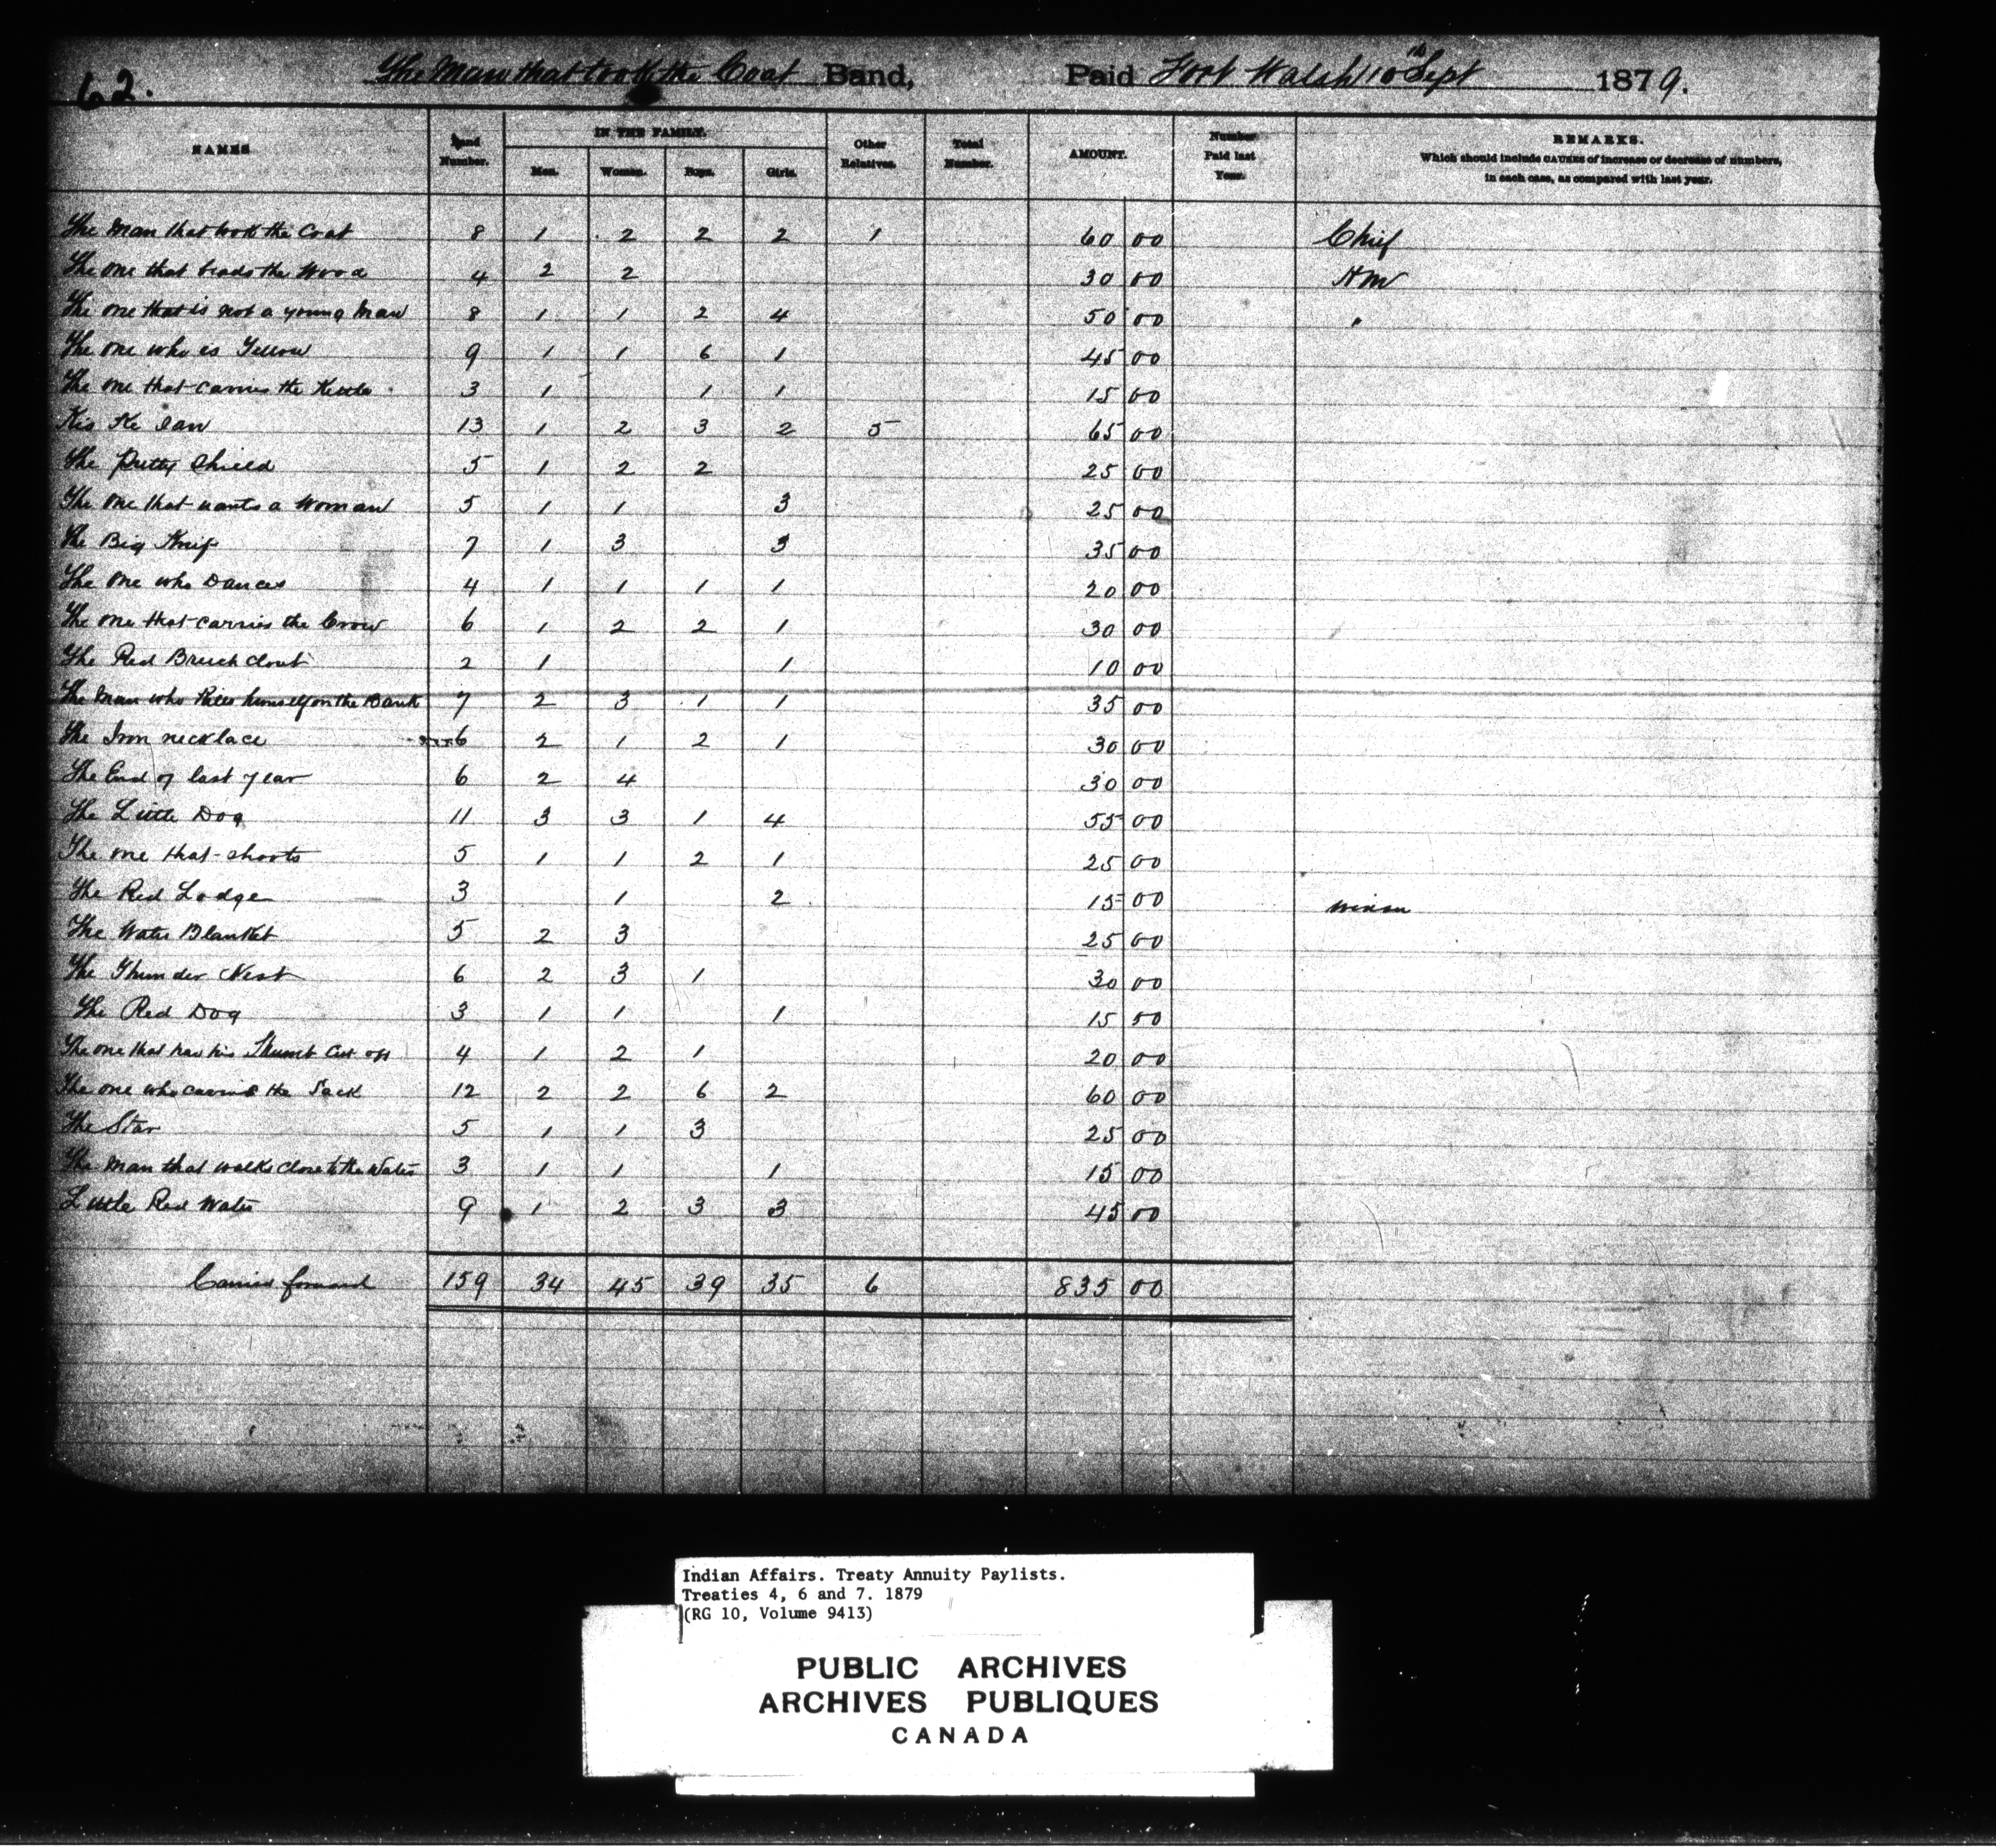 62. The Man that took the Coat Band, Paid Fort Walsh 10th Sept 1879.
NAMES Band Number. IN THE FAMILY. Men. Women. Boys. Girls. Other Relatives. Total Number. AMOUNT. Number Paid last Year. REMARKS.
Which should include CAUSES of increase or decrease of numbers,
in each case, as compared with last year.
The Man that took the Coat 8 1 2 2 2 1 60 00 Chief
The one that the Wood 4 2 2 30 00 H m
The one that is not a young Man 8 1 1 2 4 50 00 "
The one who is Yellow 9 1 1 6 1 45 00
The one that carries the Kettle 3 1 1 1 15 00
Kis Ke 13 1 2 3 2 5 65 00
The Pretty Shield 5 1 2 2 25 00
The one that wants a Woman 5 1 1 3 25 00
The Big Knife 7 1 3 3 35 00
The one who Dances 4 1 1 1 1 20 00
The one that carries the Crow 6 1 2 2 1 30 00
The Red Breech clout 2 1 1 10 00
The Man who Kills himself on the Bank 7 2 3 1 1 35 00
The Iron necklace 6 2 1 2 1 30 00
The End of last year 6 2 4 30 00
The Little Dog 11 3 3 1 4 55 00
The one that shoots 5 1 1 2 1 25 00
The Red Lodge 3 1 2 15 00
The Water Blanket 5 2 3 25 00
The Thunder Nest 6 2 3 1 30 00
The Red Dog 3 1 1 1 15 00
The one that has his Thumb Cut off 4 1 2 1 20 00
The one who carries the Sack 12 2 2 6 2 60 00
The Star 5 1 1 3 25 00
The Man that walks close to the Water 3 1 1 1 15 00
Little Red Water 9 1 2 3 3 45 00
Carried forward 159 34 45 39 35 6 835 00
Indian Affairs. Treaty Annuity Paylists.
Treaties 4, 6 and 7. 1879
(RG 10, Volume 9413)
PUBLIC ARCHIVES
ARCHIVES PUBLIQUES
CANADA